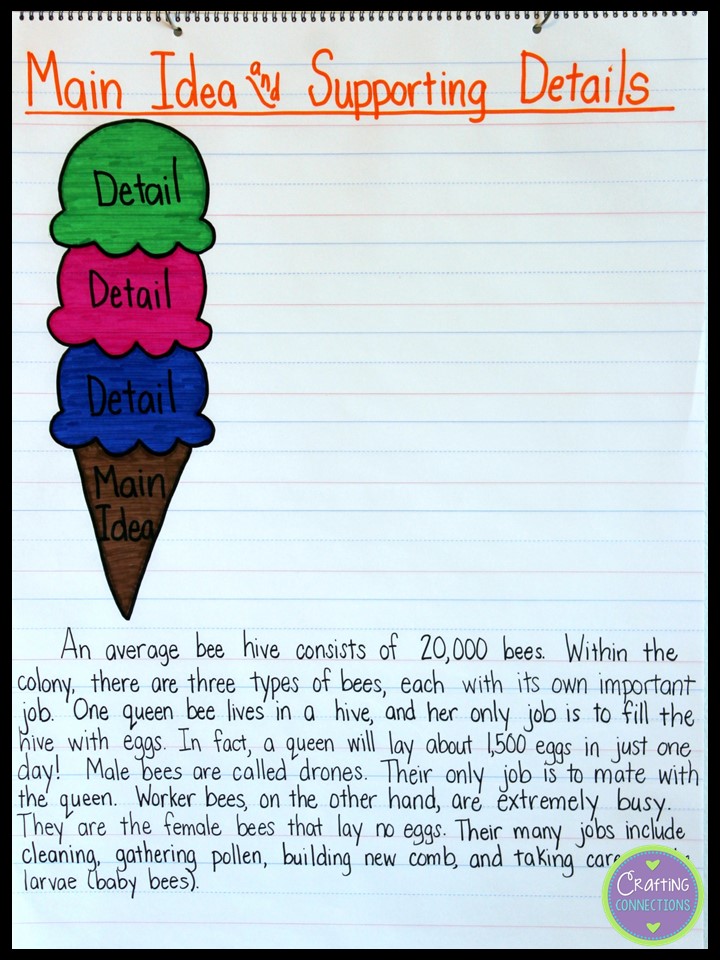 Main Idea and Supporting Details
Detail
Detail
Detail
Main
Idea
An average bee hive consists of 20,000 bees. Within the
colony, there are three types of bees, each with its own important
job. One queen bee lives in a hive, and her only job is to fill the
hive with eggs. In fact, a queen will lay about 1,500 eggs in just one
day! Male bees are called drones. Their only job is to mate with
the queen. Worker bees, on the other hand, are extremely busy.
They are the female bees that lay no eggs. Their many jobs include
cleaning, gathering pollen, building new comb, and taking care
larvae (baby bees).
Crafting
CONNECTIONS